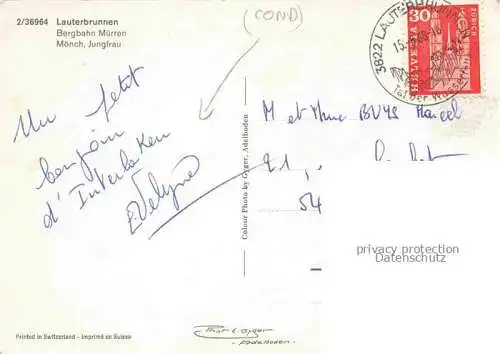 2/36964 Lauterbrunnen
Bergbahn Mürren
Mönch, Jungfrau
(COND)
3822 LAUTERBRUNNEN
15.
Tal der Wasserfälle
30
HELVETIA
ZÜRICH
Un petit
bonjour
d'Interlaken
Evelyne
Colour Photo by Gyger, Adelboden
M et Mme BUYS Marcel
21,
54
privacy protection
Datenschutz
Printed in Switzerland - Imprimé en Suisse
Phot E. Gyger
Adelboden